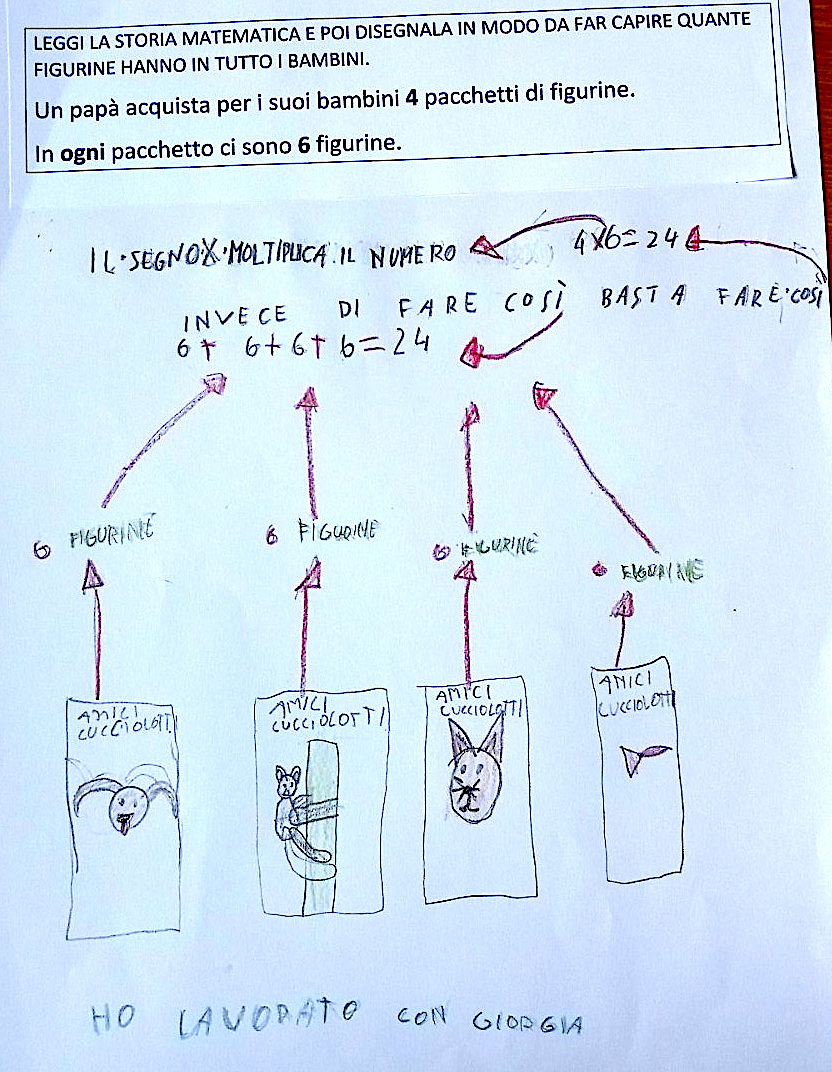 LEGGI LA STORIA MATEMATICA E POI DISEGNALA IN MODO DA FAR CAPIRE QUANTE
FIGURINE HANNO IN TUTTO I BAMBINI.
Un papà acquista per i suoi bambini 4 pacchetti di figurine.
In ogni pacchetto ci sono 6 figurine.
IL·SEGNO X·MOLTIPLICA IL NUMERO
4x6=24
INVECE DI FARE COSÌ BASTA FARE·COSÌ
6+ 6+6+ 6=24
6 FIGURINE
6 FIGURINE
6 FIGURINE
6 FIGURINE
AMICI
CUCCIOLOTTI
AMICI
CUCCIOLOTTI
AMICI
CUCCIOLOTTI
AMICI
CUCCIOLOTTI
HO LAVORATO CON GIORGIA